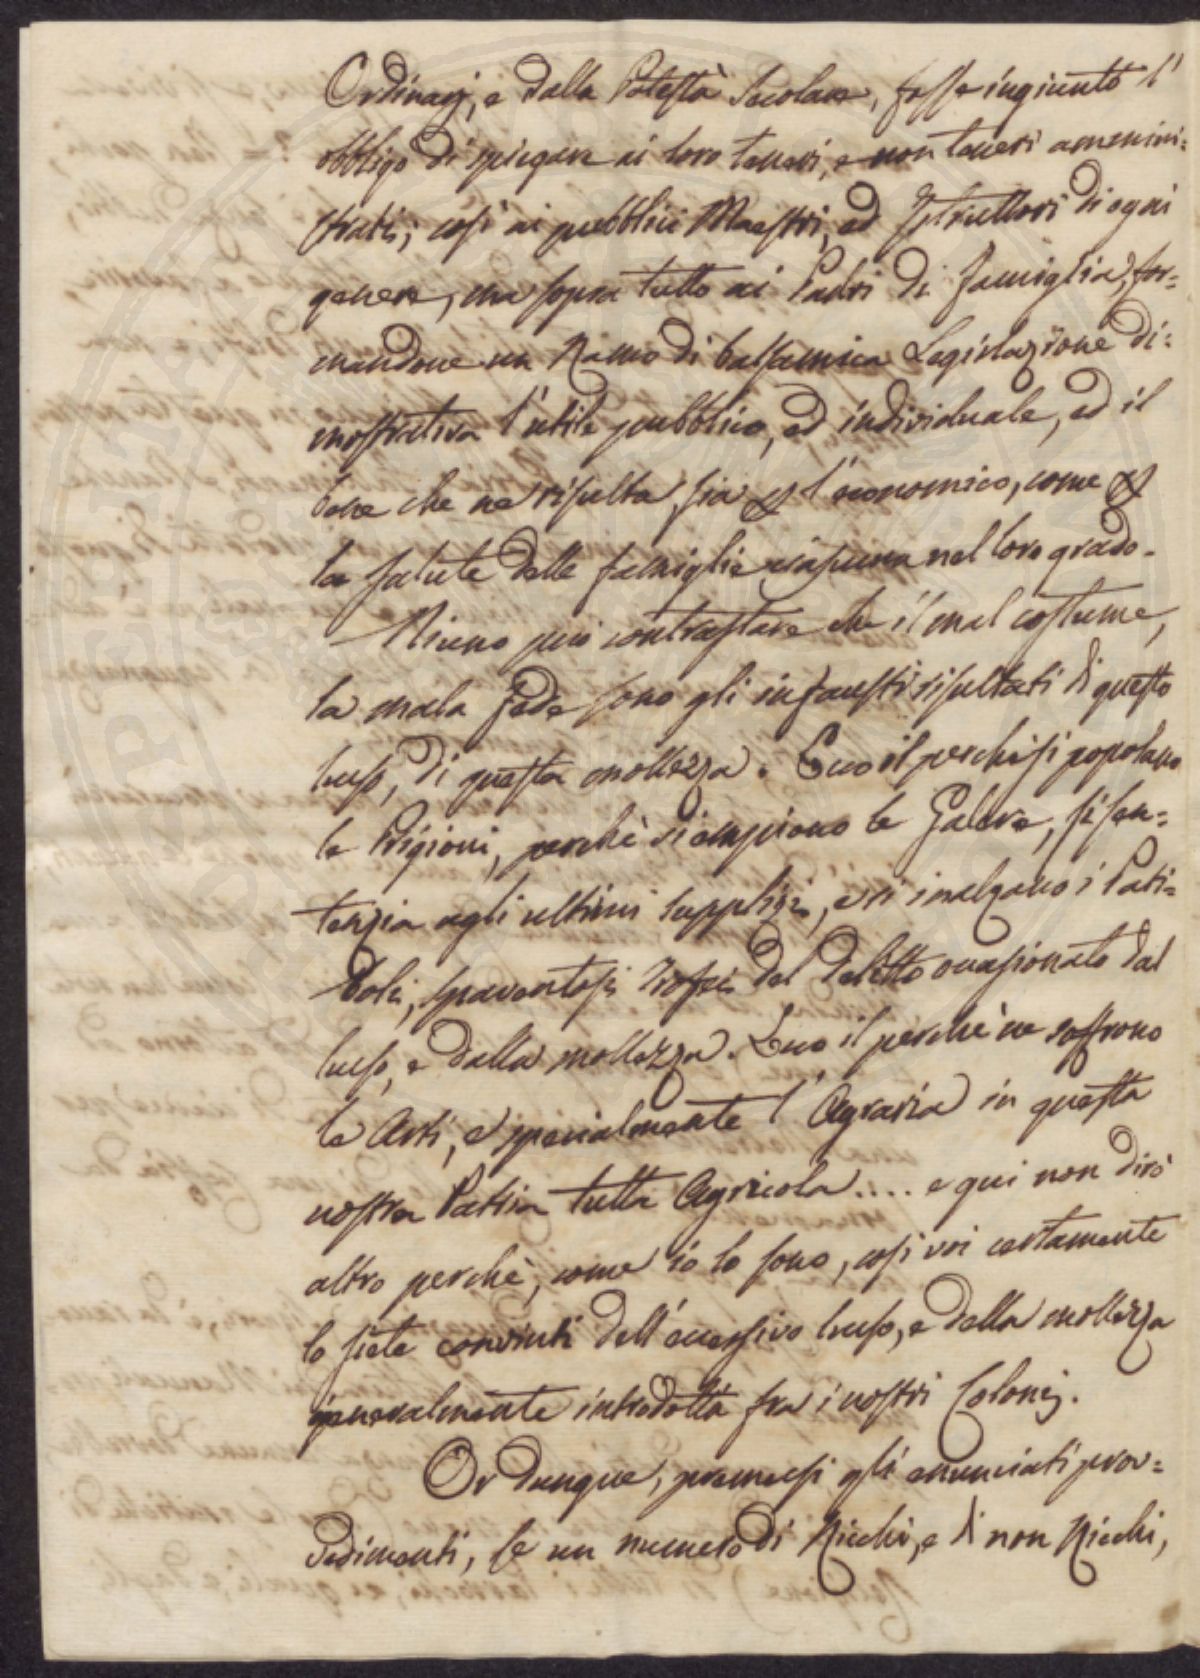 Ordinarj, e dalla Potestà Secolare, fosse ingiunto l'
obbligo di spiegare ai loro teneri, e non teneri amenini=
strati; così ai pubblici Maestri, ed Istruttori di ogni
genere, ma sopra tutto ai Padri di famiglia, for=
mandone un Ramo di balsamica Legislazione di=
mostrativa l'utile pubblico, ed individuale, ed il
bene che ne risulta sia p l'economico, come p
la salute delle famiglie ciascuna nel loro grado.
Niuno può contrastare che il mal costume,
la mala fede sono gli infausti risultati di questo
lusso, di questa mollezza. Ecco il perchè si popolano
le Prigioni, perchè si empiono le Galere, si sen=
tenzia agli ultimi supplizi, e si inalzano i Pati=
boli, spaventosi Trofei del delitto occasionato dal
lusso, e dalla mollezza. Ecco il perchè ne soffrono
le Arti, e specialmente l'Agraria in questa
nostra Patria tutta Agricola.... e qui non dirò
altro perchè, come io lo sono, così voi certamente
lo siete convinti dell'eccessivo lusso, e della mollezza
generalmente introdotta fra i nostri Colonj.
Or dunque, premessi gli enunciati prov=
vedimenti, se un numero di Ricchi, e di non Ricchi,